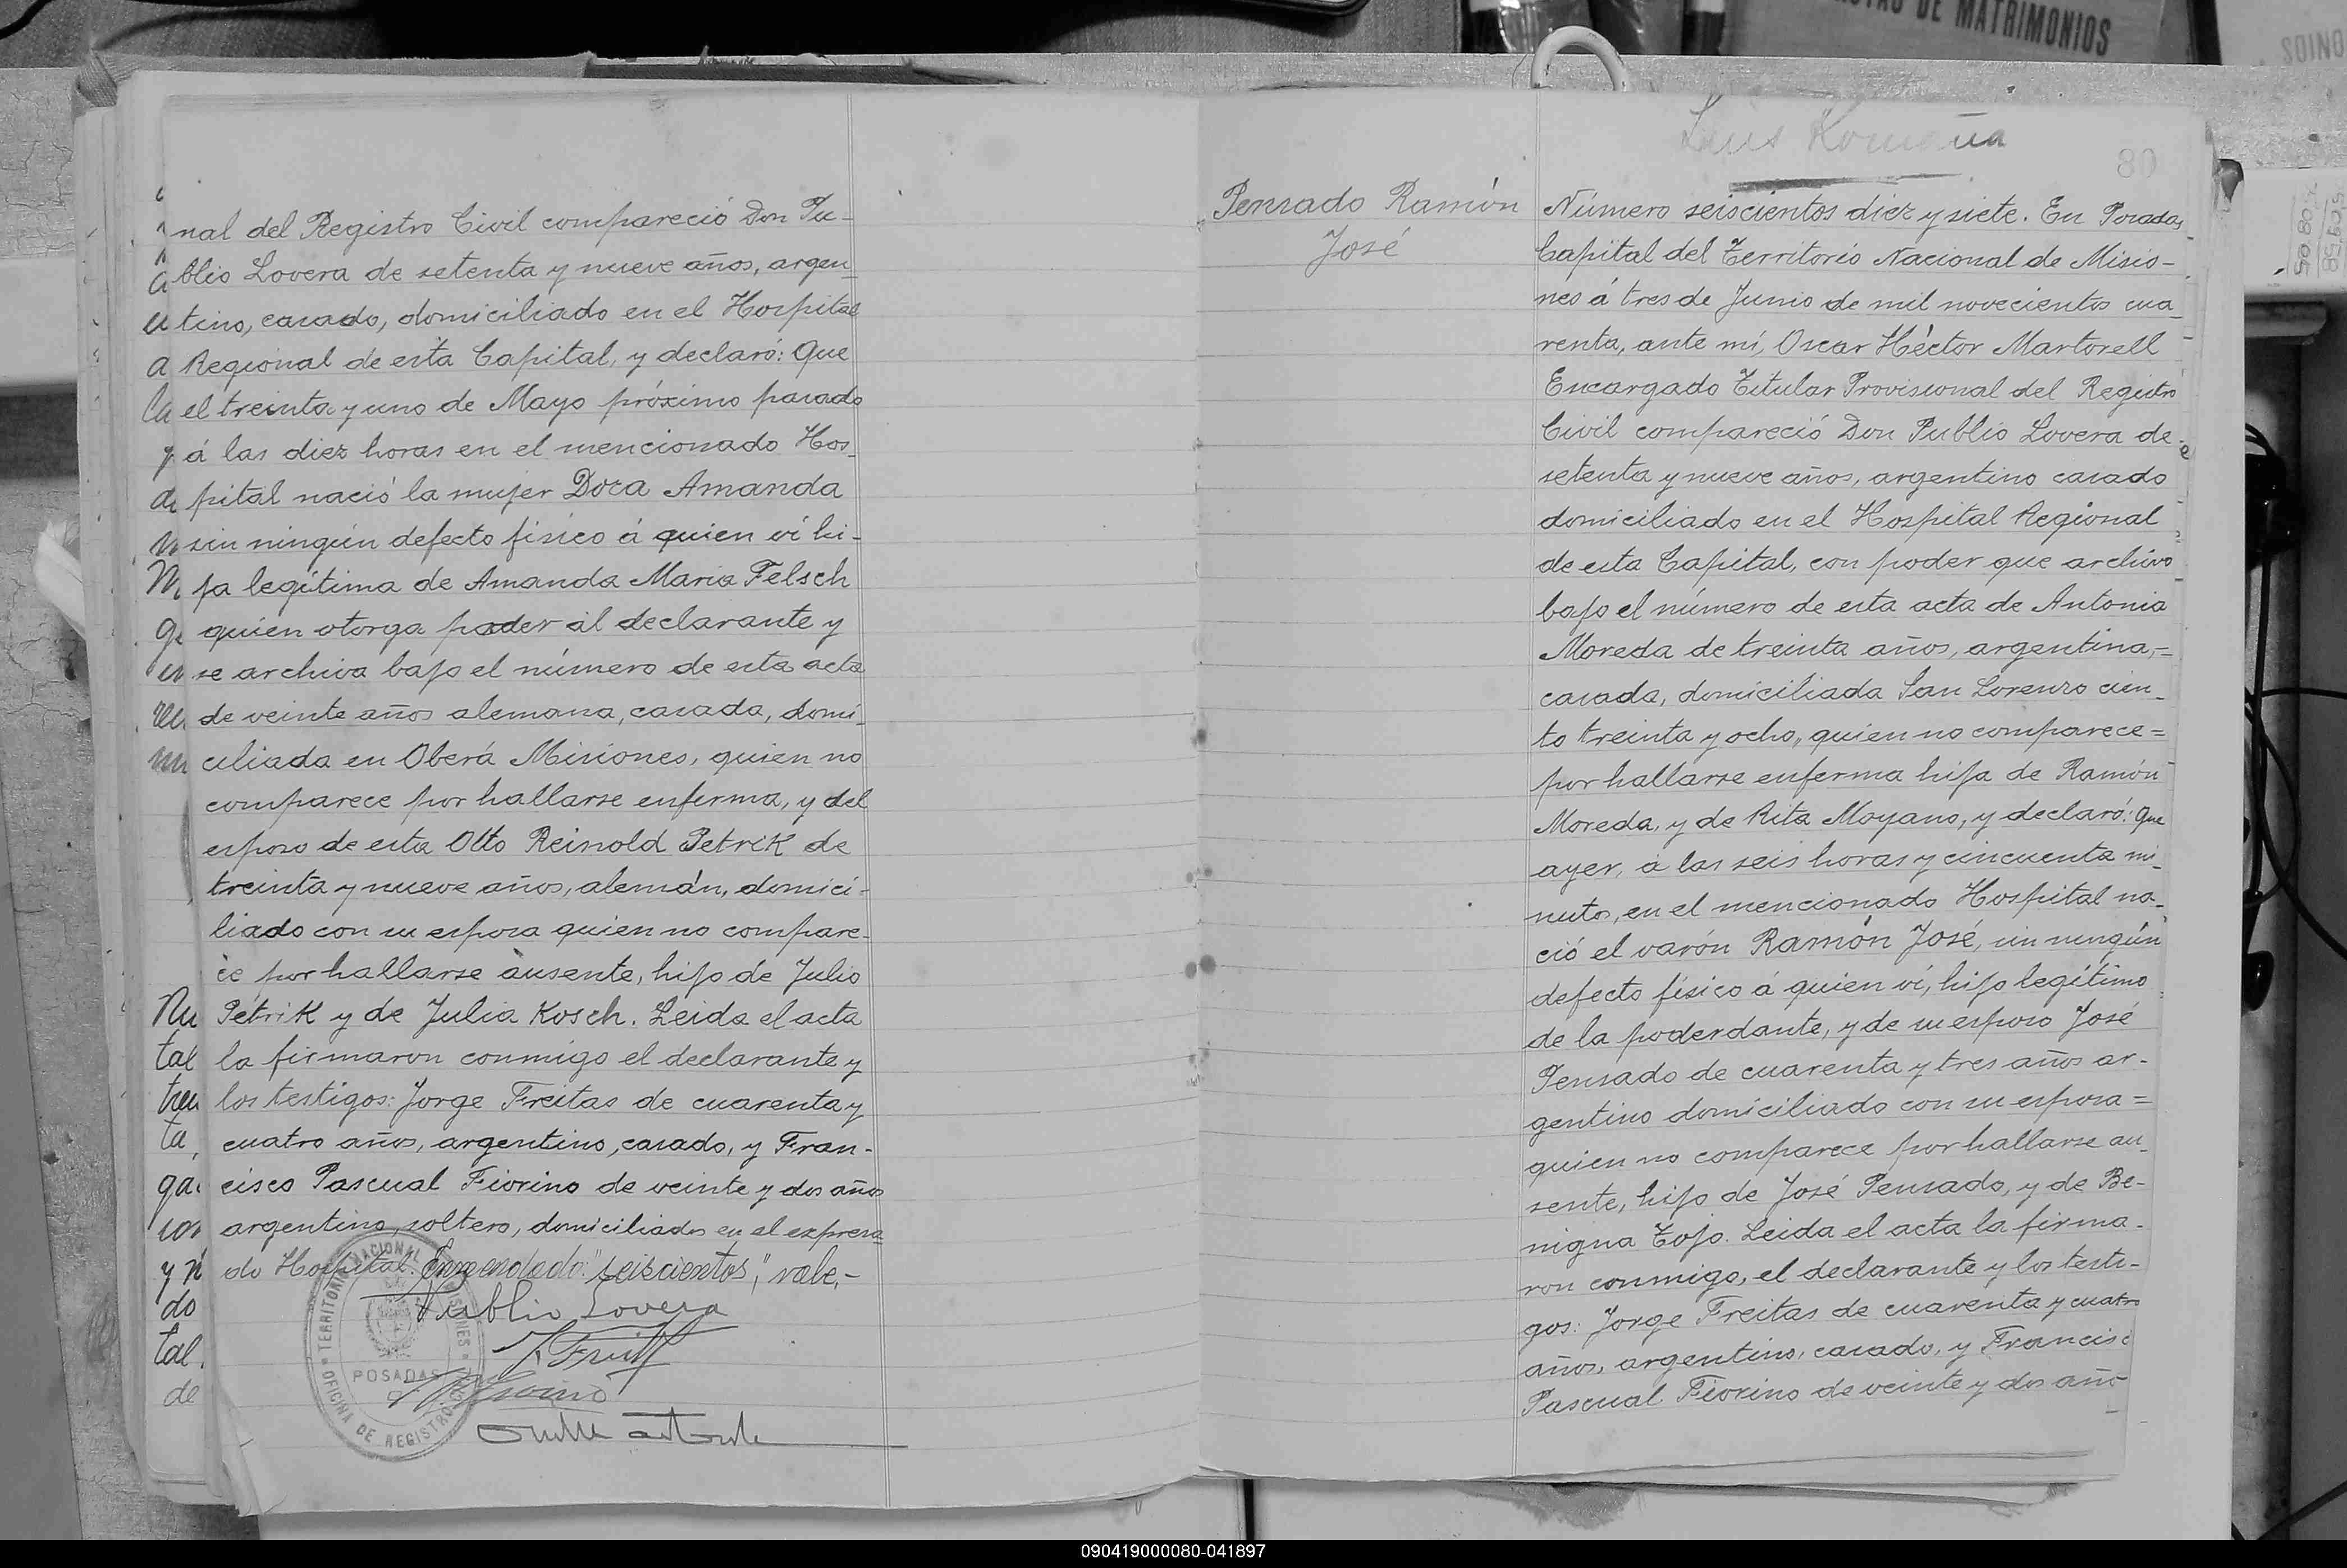 nal del Registro Civil compareció Don Pu-
blio Lovera de setenta y nueve años, argen
tino, casado, domiciliado en el Hospital
Regional de esta Capital, y declaró: Que
el treinta y uno de Mayo próximo pasado
á las diez horas en el mencionado Hos-
pital nació la mujer Dora Amanda
sin ningún defecto físico á quien ví hi-
ja legítima de Amanda Maria Felsch
quien otorga poder al declarante y
se archiva bajo el número de esta acta
de veinte años alemana, casada, domi-
ciliada en Oberá Misiones, quien no
comparece por hallarse enferma, y del
esposo de esta Otto Reinold Petrik de
treinta y nueve años, alemán, domici-
liado con su esposa quien no compare-
ce por hallarse ausente, hijo de Julio
Petrik y de Julia Kosch. Leida el acta
la firmaron conmigo el declarante y
los testigos: Jorge Freitas de cuarenta y
cuatro años, argentino, casado, y Fran-
cisco Pascual Fiorino de veinte y dos años
argentino, soltero, domiciliados en el expresa
do Hospital. Enmendado: "seiscientos," vale.-
Publio Lovera
TERRITORIO NACIONAL MISIONES
POSADAS
OFICINA DE REGISTRO
Luis Romaña
80
Pensado Ramón
José
Número seiscientos diez y siete. En Posadas,
Capital del Territorio Nacional de Misio-
nes á tres de Junio de mil novecientos cua-
renta, ante mí, Oscar Héctor Martorell
Encargado Titular Provisional del Registro
Civil compareció Don Publio Lovera de
setenta y nueve años, argentino casado
domiciliado en el Hospital Regional
de esta Capital, con poder que archivo
bajo el número de esta acta de Antonia
Moreda de treinta años, argentina,=
casada, domiciliada San Lorenzo cien-
to treinta y ocho, quien no comparece=
por hallarse enferma hija de Ramón
Moreda, y de Rita Moyano, y declaró: Que
ayer, a las seis horas y cincuenta mi-
nutos, en el mencionado Hospital na-
ció el varón Ramón José, sin ningún
defecto físico á quien ví, hijo legítimo
de la poderdante, y de su esposo José
Pensado de cuarenta y tres años ar-
gentino domiciliado con su esposa=
quien no comparece por hallarse au-
sente, hijo de José Pensado, y de Be-
nigna Tojo. Leida el acta la firma-
ron conmigo, el declarante y los testi-
gos: Jorge Freitas de cuarenta y cuatro
años, argentino, casado, y Francisc
Pascual Fiorino de veinte y dos año
DE MATRIMONIOS
090419000080-041897